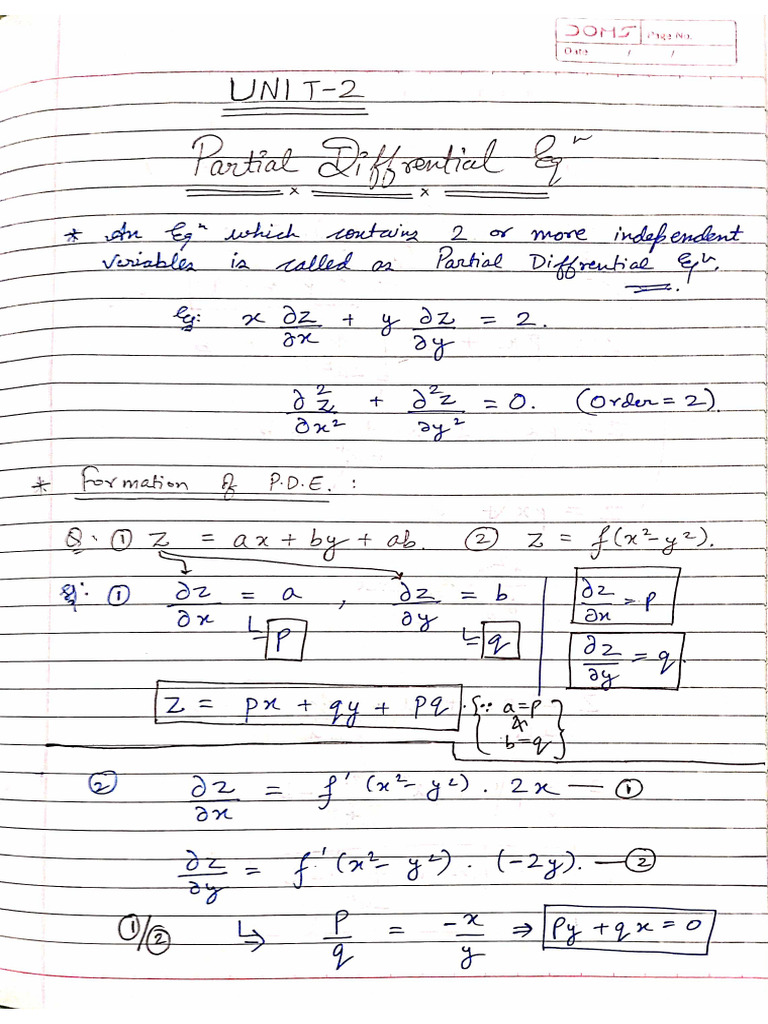 DOMS Page No.
Date / /
UNIT-2
Partial Diffrential Eqⁿ
* An Eqⁿ which contains 2 or more independent
variables is called as Partial Diffrential Eqⁿ.
Eg: x ∂z/∂x + y ∂z/∂y = 2.
∂²z/∂x² + ∂²z/∂y² = 0. (Order = 2)
* Formation of P.D.E. :
Q. ① Z = ax + by + ab. ② Z = f(x²-y²).
① ∂z/∂x = a , ∂z/∂y = b ∂z/∂x = p
↳ p ↳ q ∂z/∂y = q.
Z = px + qy + pq. {∵ a=p & b=q}
② ∂z/∂x = f'(x²-y²). 2x — ①
∂z/∂y = f'(x²-y²). (-2y). — ②
①/② ↳ p/q = -x/y ⇒ py + qx = 0